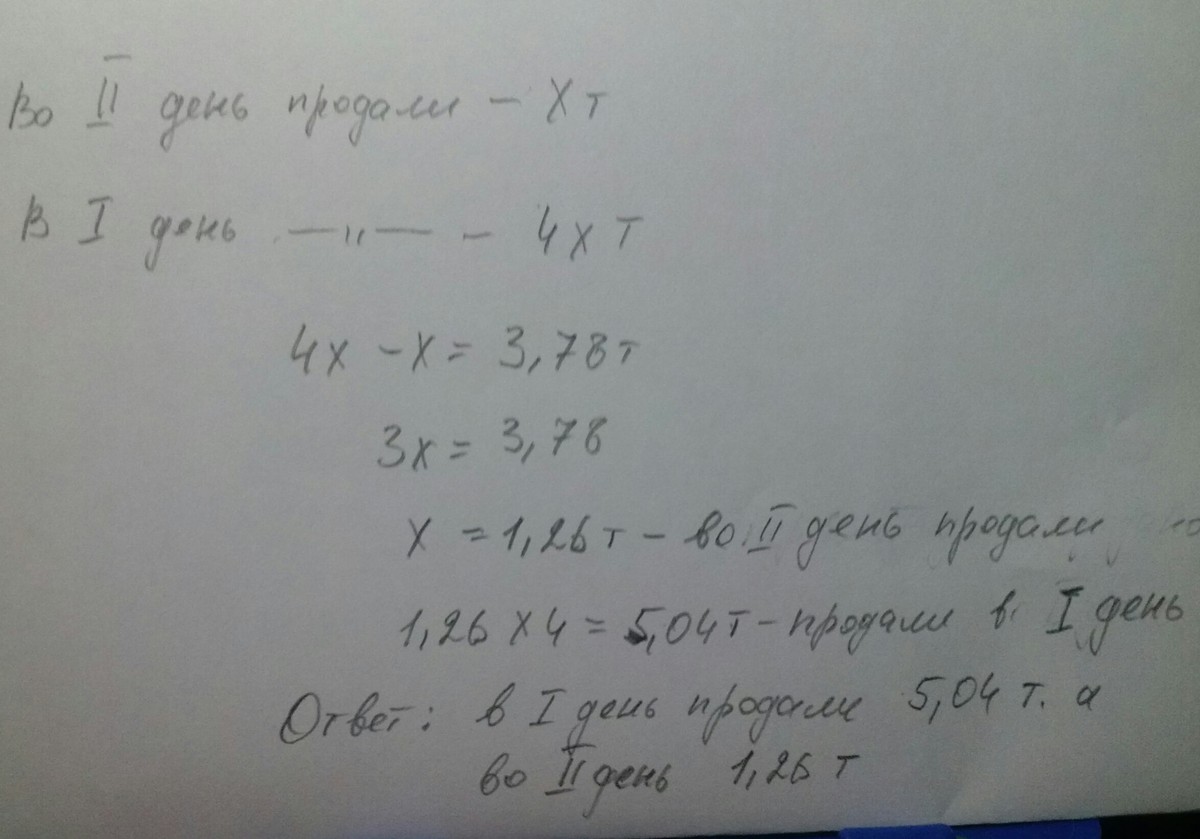 Во II день продали - X т
В I день —"— - 4x т
4x - x = 3,78 т
3x = 3,78
x = 1,26 т - во II день продали
1,26 x 4 = 5,04 т - продали в I день
Ответ: в I день продали 5,04 т. а
во II день 1,26 т